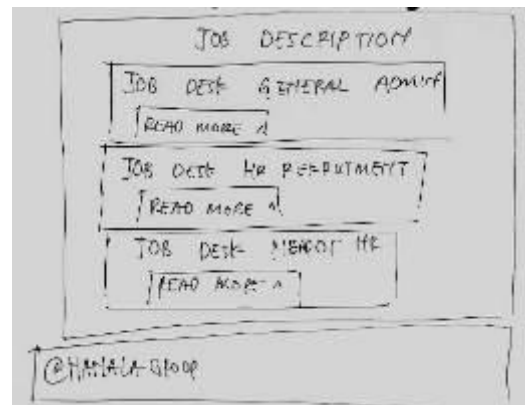 JOB DESCRIPTION
JOB DESK GENERAL ADMIN
READ MORE ^
JOB DESK HR RECRUTMENT
READ MORE ^
JOB DESK HR
READ MORE ^
@HAMALA GROUP